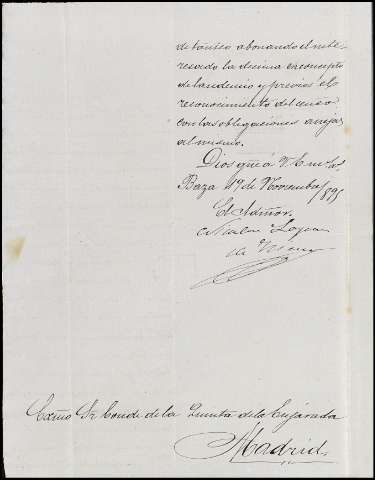 de tanteo abonando el inte-
resado la decima en concepto
de laudemio y previos el
reconocimiento del censo
con las obligaciones anejas
al mismo.
Dios gue á V.E. m. as.
Baza 19 de Novembre/895
El Admor.
Nicolas
de
Excmo Sr Conde de la Quinta de la Enjarada
Madrid.